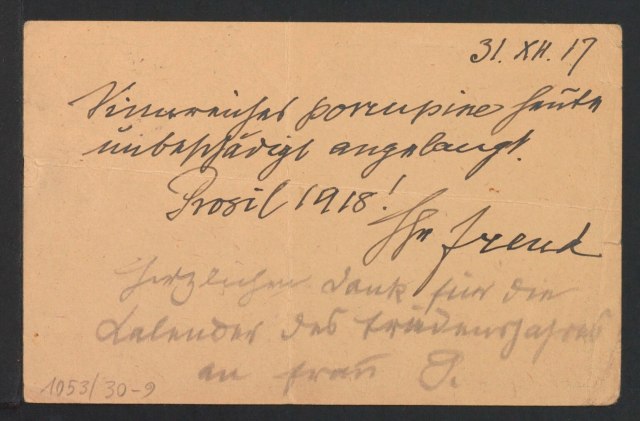 31. XII. 17
Sinnreiches porcupine heute
unbeschädigt angelangt.
Prosit 1918!
Ihr Freud
Herzlichen Dank für die
Kalender des Friedensjahres
an Frau P.
1053/30-9